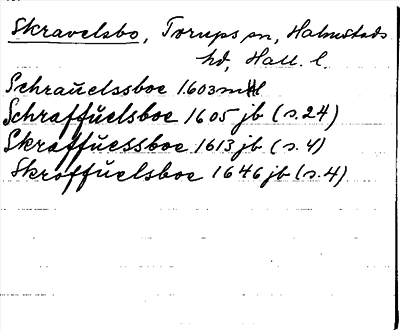 Skravelsbo, Torups sn, Halmstads
hd, Hall. l.
Schraŭelssboe 1603 mtl
Schraffŭelsboe 1605 jb (s. 24)
Skraffŭessboe 1613 jb (s. 4)
Skroffŭelsboe 1646 jb (s. 4)